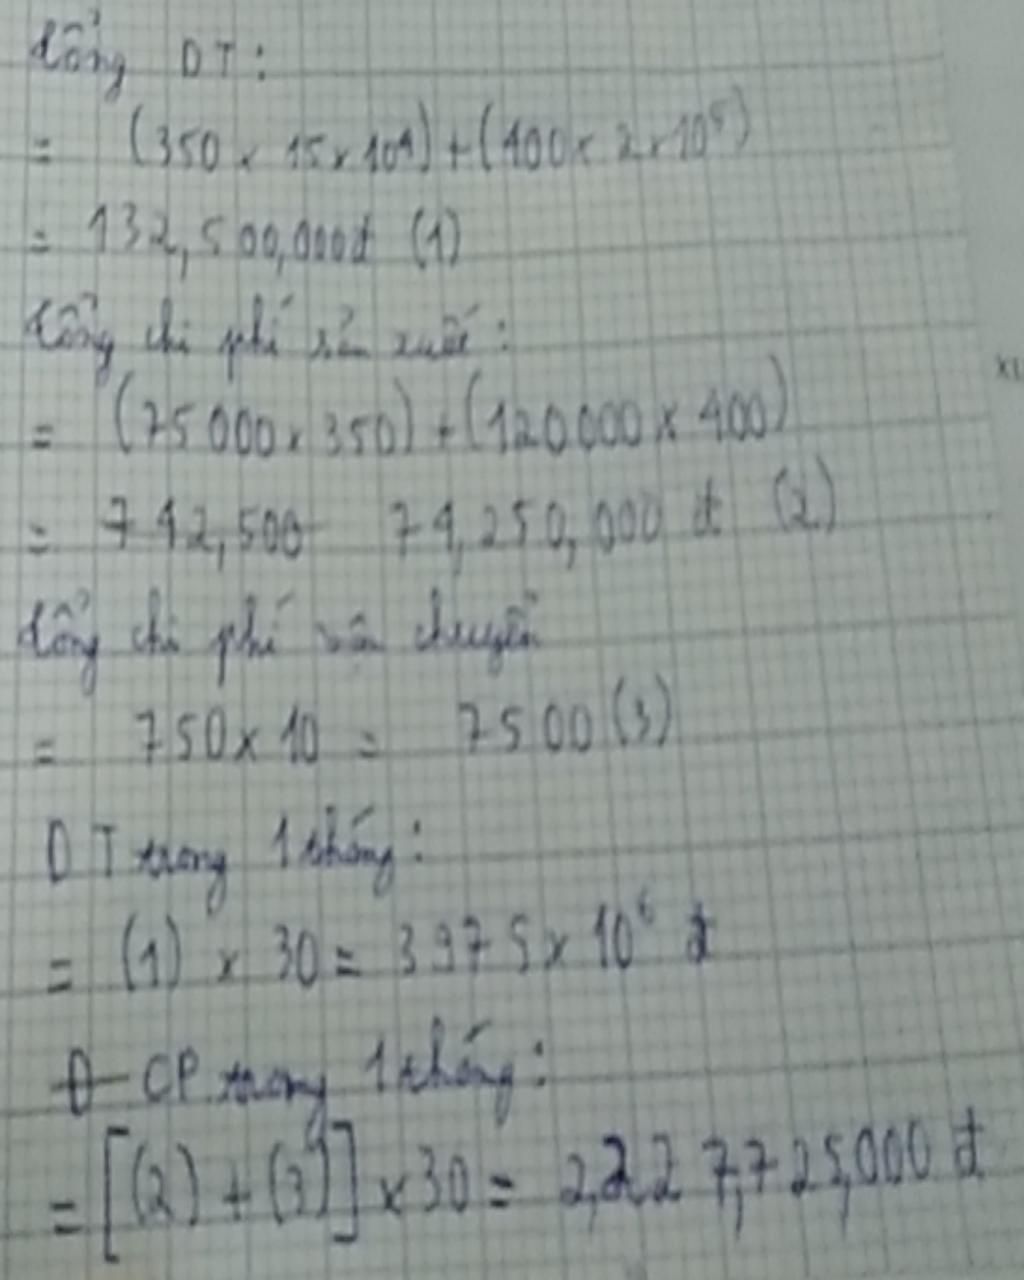 tổng DT:
= (350 x 15 x 10⁴) + (400 x 2 x 10⁵)
= 132,500,000đ (1)
tổng chi phí sản xuất:
= (75000 x 350) + (120000 x 400)
= 742,500 74,250,000 đ (2)
tổng chi phí vận chuyển
= 750 x 10 = 7500 (3)
DT trong 1 tháng:
= (1) x 30 = 3975 x 10⁶ đ
Đ CP trong 1 tháng:
= [(2) + (3)] x 30 = 2,227,725,000 đ